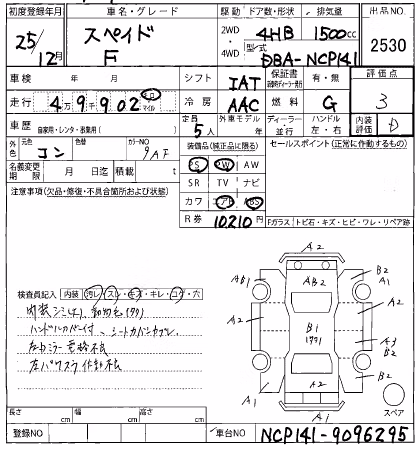 初度登録年月 車名・グレード 駆動 ドア数・形状 排気量 出品NO
25/12月 スペイド F 2WD・4WD 4HB 1500cc 2530
型式 DBA-NCP141
車検 年 月 シフト IAT 保証書 有・無 評価点
走行 4万9千902 km マイル 冷房 AAC 燃料 G 3
車歴 自家用・レンタ・事業用( ) 定員 5人 外車モデル 年 ディーラー・並行 ハンドル 左・右 内装評価 D
外色 元色 コン 色替 カラーNO 9AF 装備品(純正品に限る) セールスポイント(正常に作動するもの)
名義変更期限 月 日迄 積載 t PS PW AW
注意事項(欠品・修復・不具合箇所および状態) SR TV ナビ
カワ エアB ABS
R券 10,210円 Fガラス・トビ石・キズ・ヒビ・ワレ・リペア跡
A2
AB1 AB2 B2 A1
検査員記入 内装・汚レ・スレ・コゲ・キレ・穴
A2 B1 A2
ハンドルカバー付 シートカバー
左右ミラー格納不良 A3 B2
左パワスラ作動不良 A2 B2
A1 A1 スペア
長さ cm 幅 cm 高さ cm
登録NO 車台NO NCP141-9096295